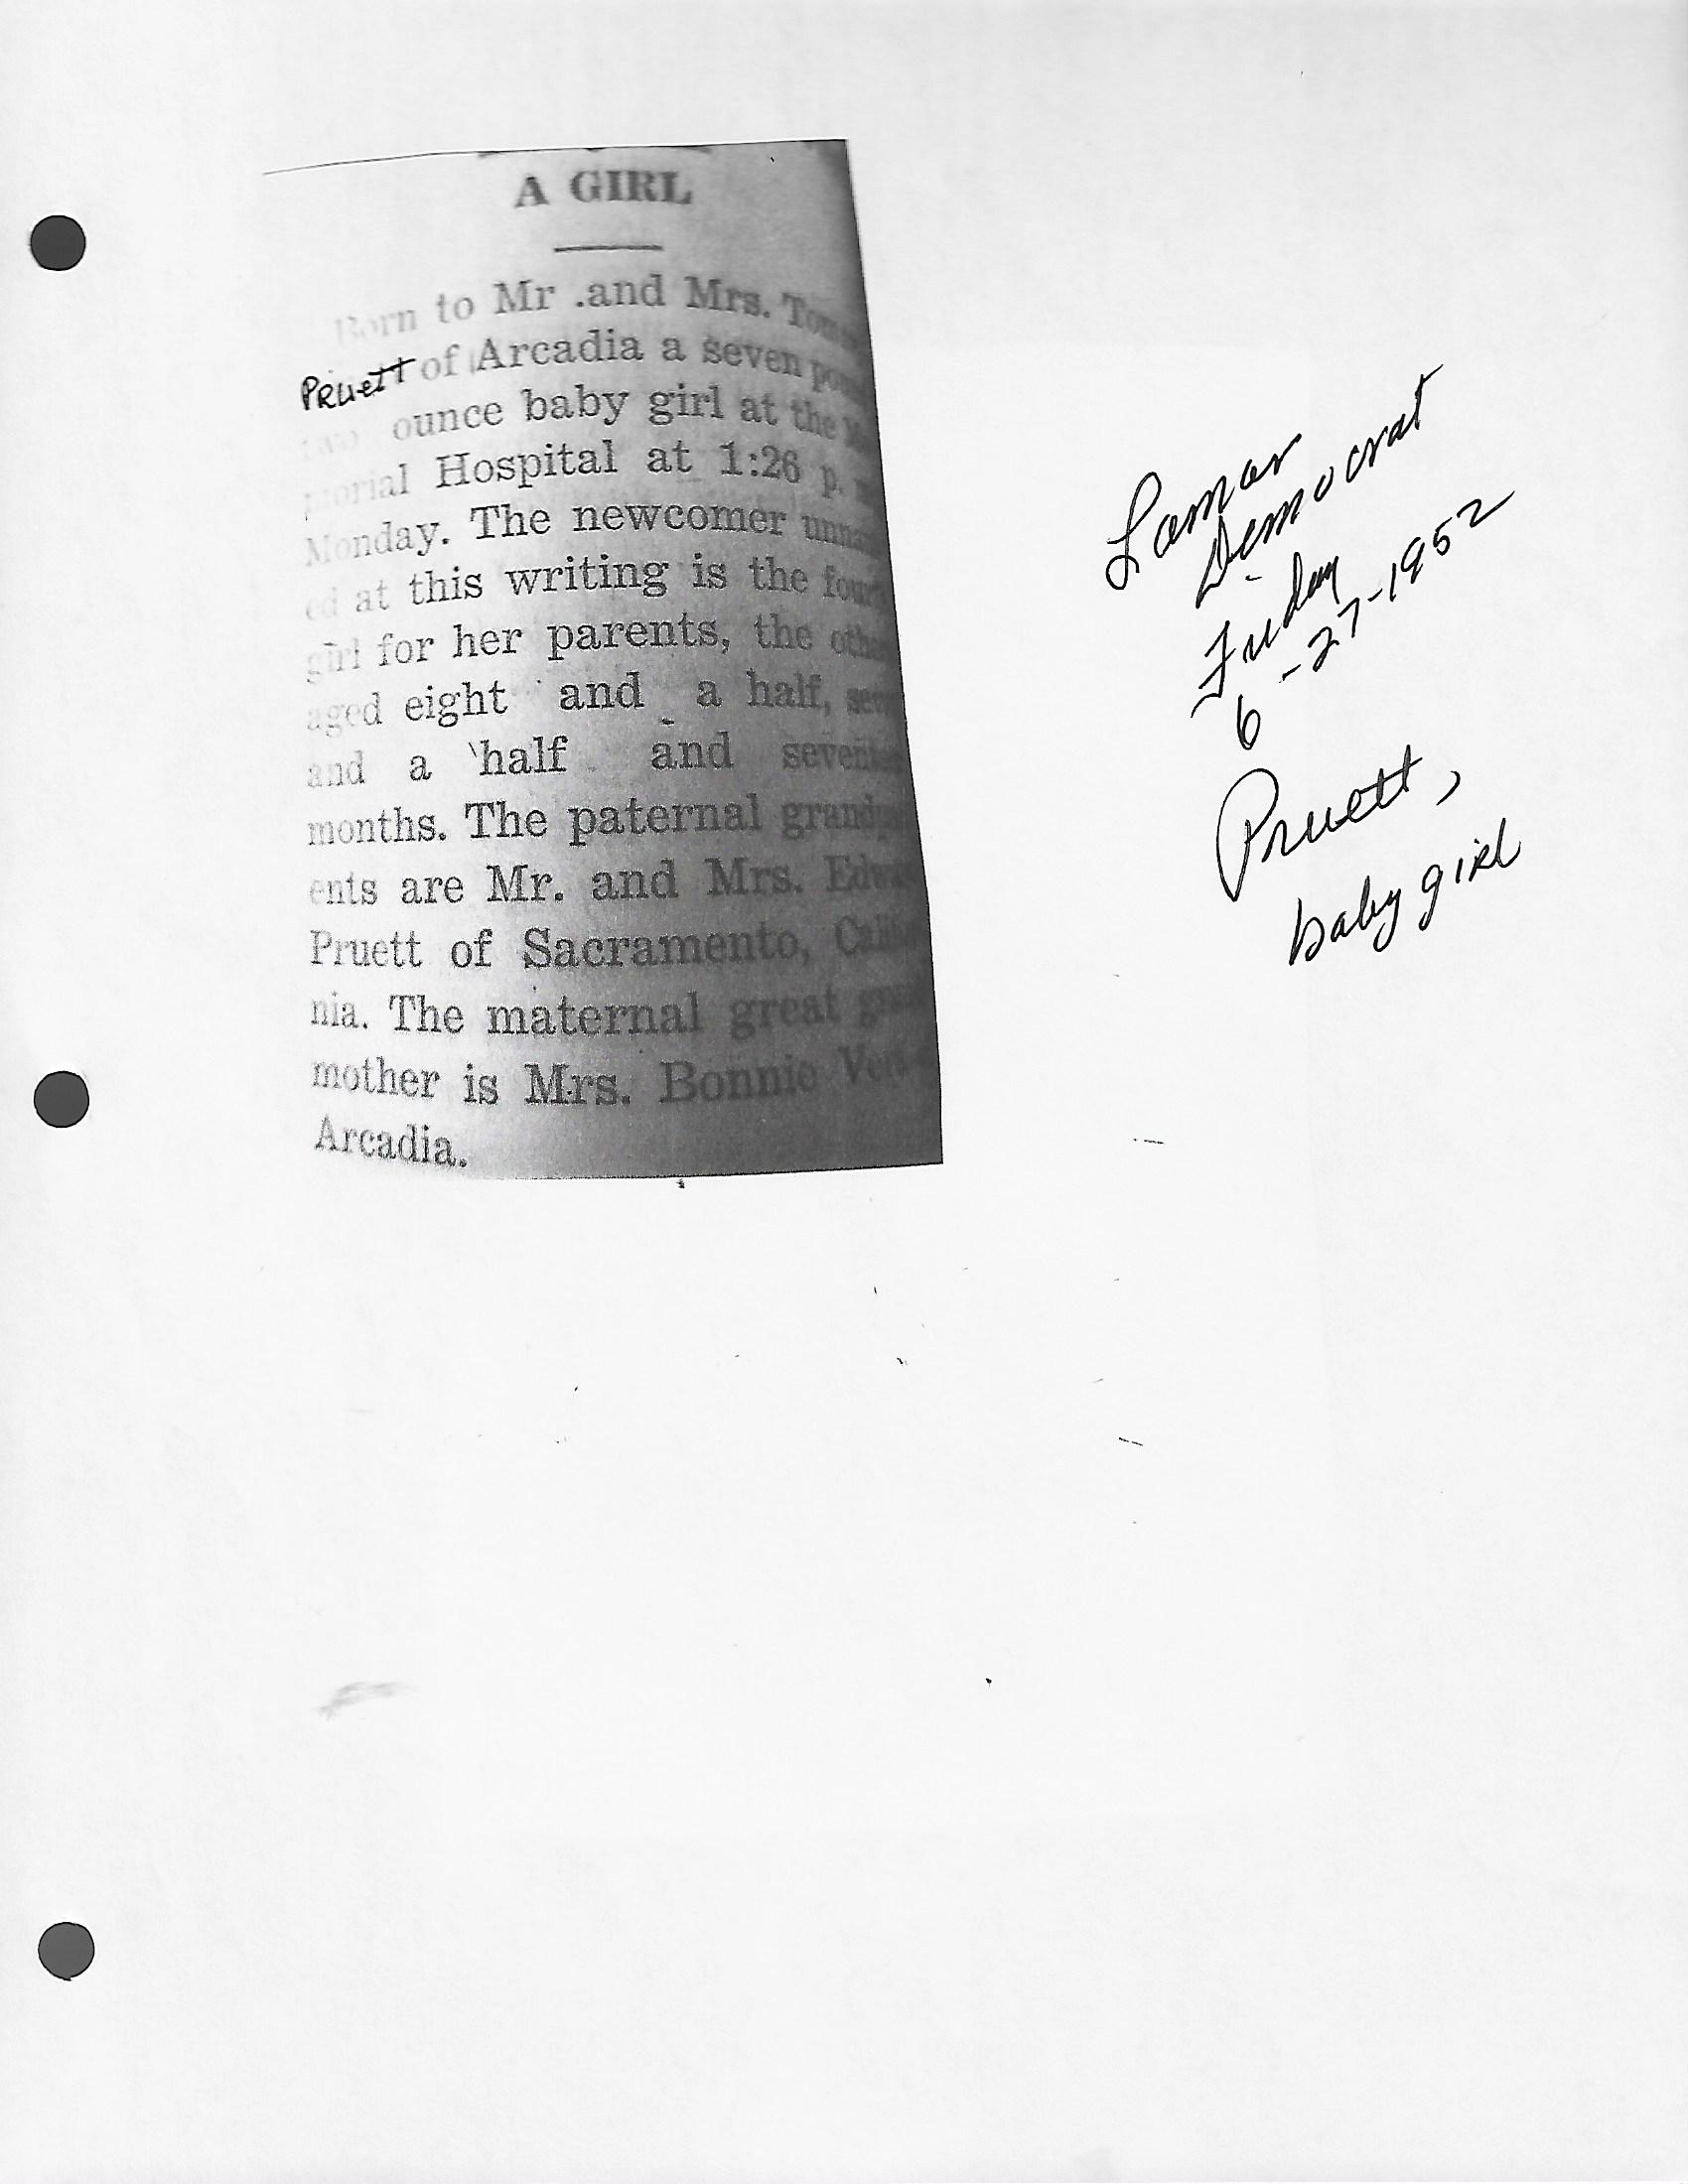 A GIRL
Born to Mr .and Mrs.
Pruett of Arcadia a seven
two ounce baby girl at the
morial Hospital at 1:26 p.
Monday. The newcomer
ed at this writing is the
girl for her parents, the
aged eight and a half,
and a half and
months. The paternal
ents are Mr. and Mrs.
Pruett of Sacramento,
nia. The maternal great
mother is Mrs. Bonnie
Arcadia.
Lamar
Democrat
Friday
6-27-1952
Pruett,
baby girl